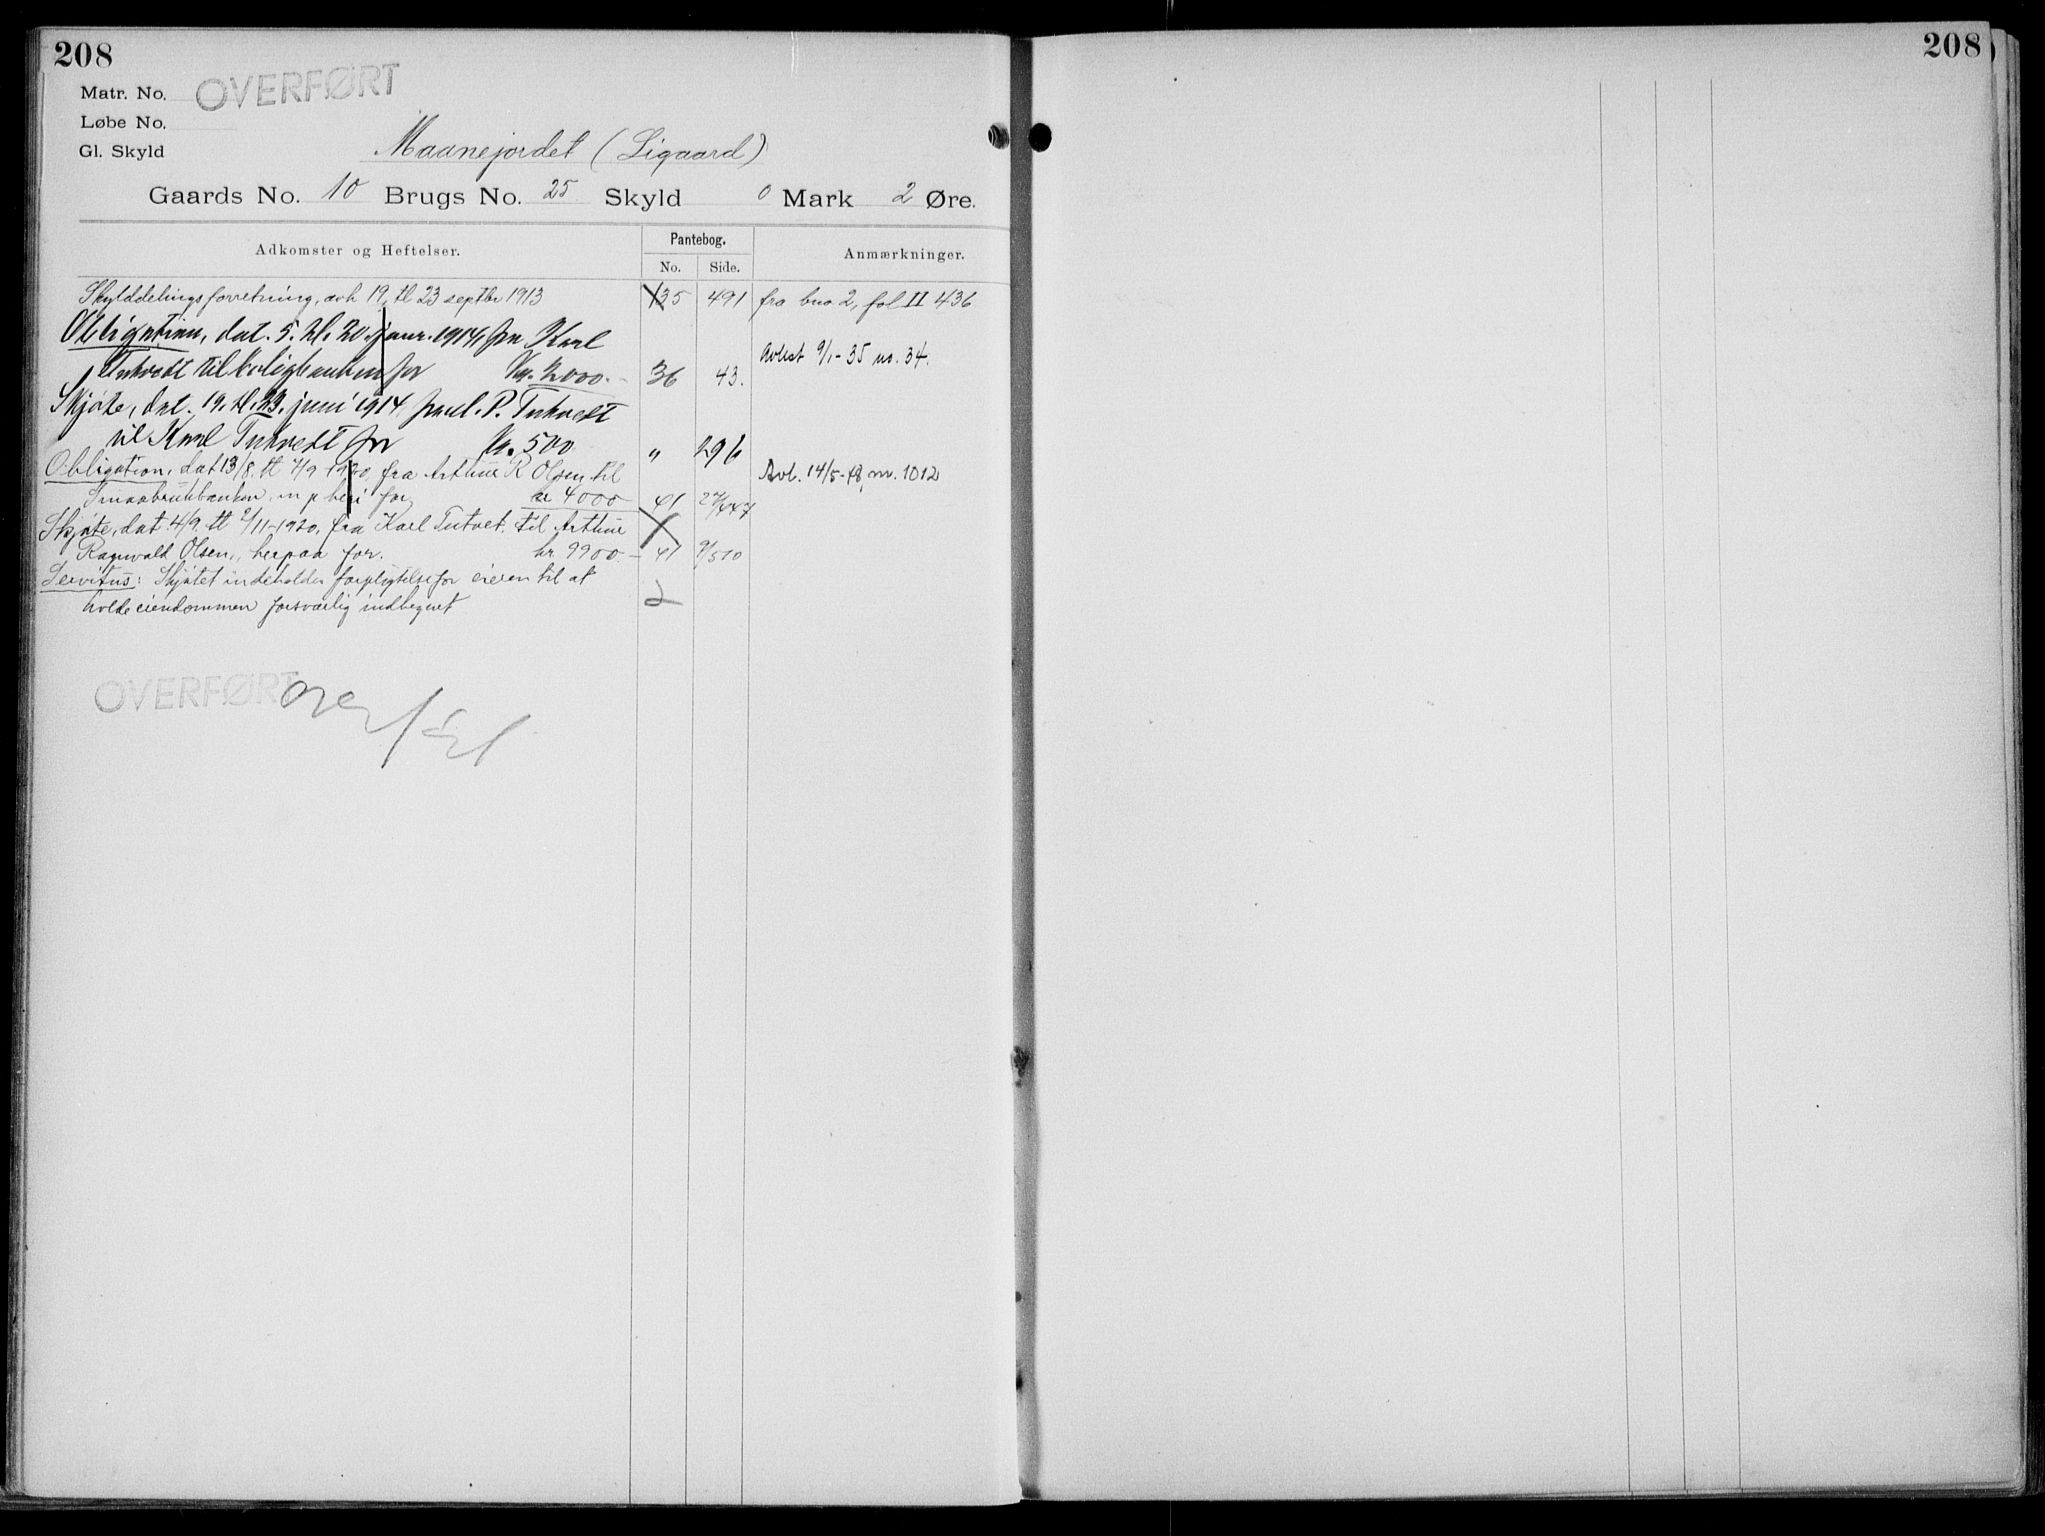 208
208
Matr. No.
OVERFØRT
Løbe No.
Gl. Skyld
Maanejordet (Ligaard)
Gaards No. 10 Brugs No. 25 Skyld 0 Mark 2 Øre.
Adkomster og Heftelser.
Pantebog.
No. Side.
Anmærkninger.
Skylddelingsforretning, avh 19, tl 23 septbr 1913 35 491 fra bno 2, fol II 436
Obligation, dat. 5. tl. 20. janr. 1914, fra Karl
Tutvedt til Boligbanken for Kr. 2000.- 36 43. Avlest 9/1-35 no. 34.
Skjøte, dat. 19. tl. 23. juni 1914 fra P. Tutvedt
til Karl Tutvedt for Kr. 500 " 296
Obligation, dat 13/8. tl 4/9 1920, fra Arthur R Olsen til
Smaabrukbanken, m p her i for kr 4000 41 27/447 Avl. 14/5-48, nr. 1012
Skjøte, dat 4/9. tl 2/11-1920, fra Karl Tutvet. til Arthur
Ragnvald Olsen, herpaa for. kr. 9900.- 41 9/510
Servitus: Skjøtet indeholder forpligtelse for eieren til at
holde eiendommen forsvarlig indhegnet 2
OVERFØRT
Overført